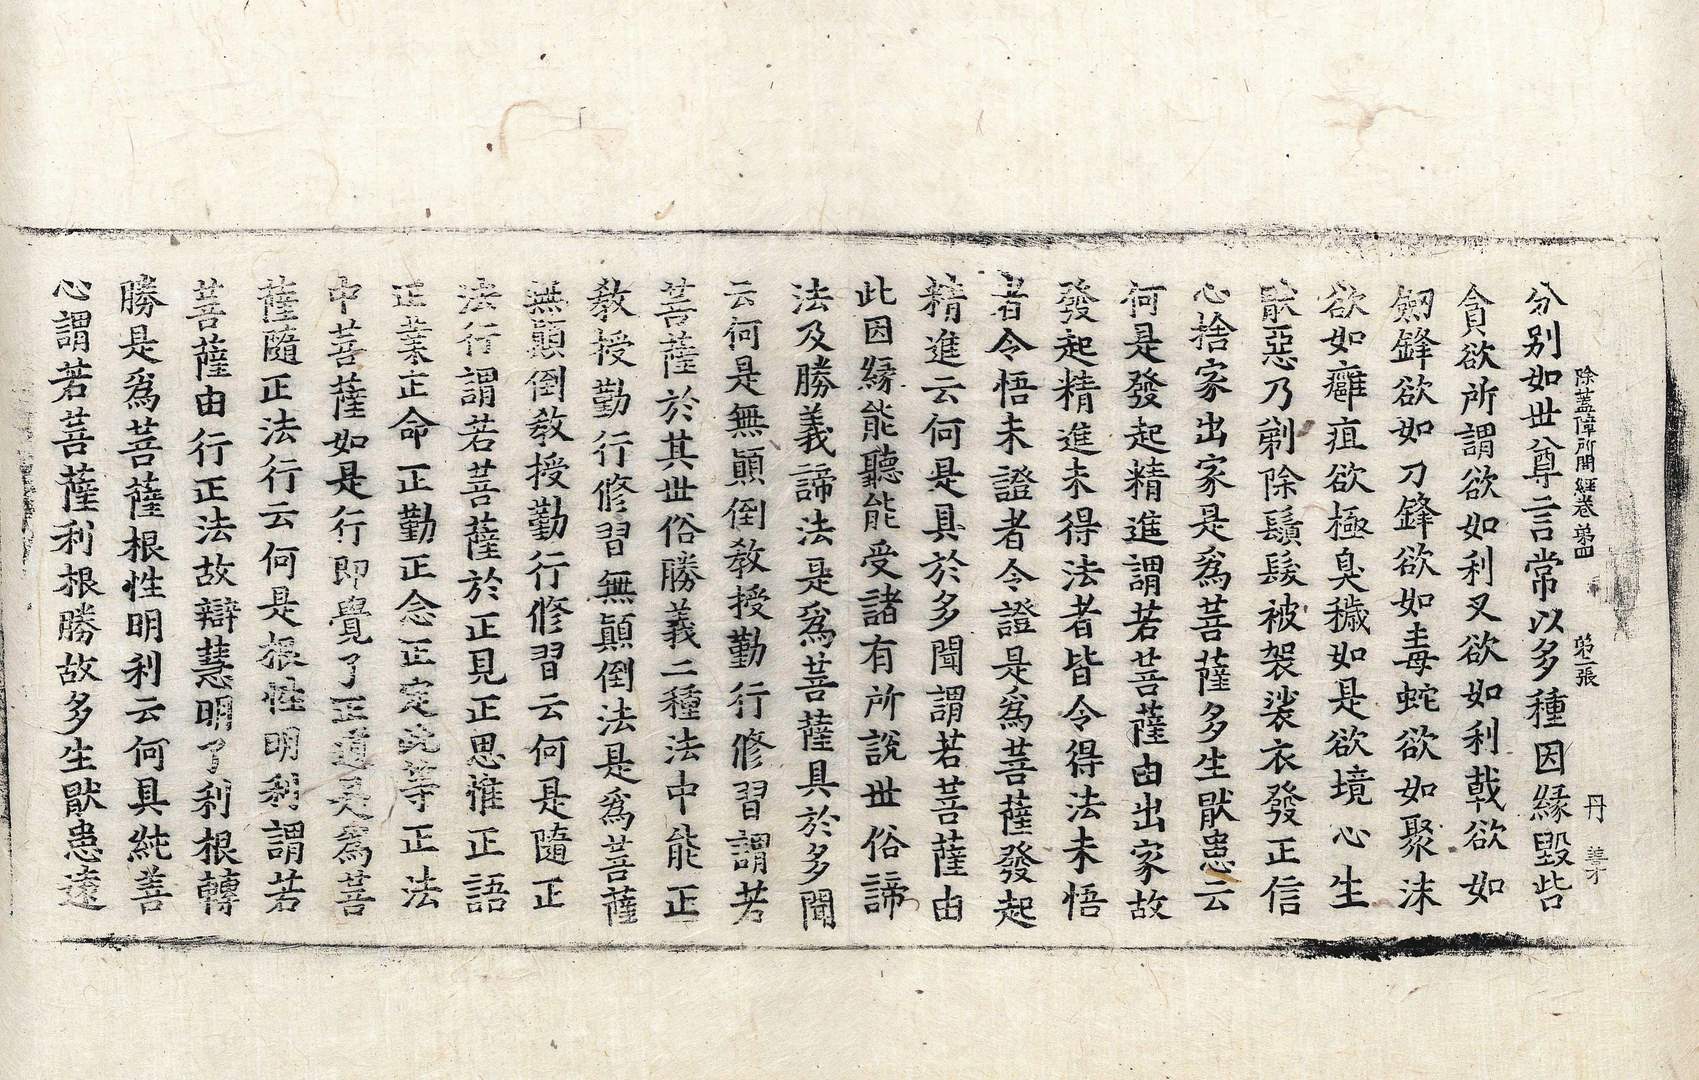 除蓋障所問經卷第四 第二張 丹
分別如世尊言常以多種因緣毀呰
貪欲所謂欲如利叉欲如利戟欲如
劒鋒欲如刀鋒欲如毒蛇欲如聚沫
欲如癰疽欲極臭穢如是欲境心生
猒惡乃剃除鬚髮被袈裟衣發正信
心捨家出家是爲菩薩多生猒患云
何是發起精進謂若菩薩由出家故
發起精進未得法者皆令得法未悟
者令悟未證者令證是爲菩薩發起
精進云何是具於多聞謂若菩薩由
此因緣能聽能受諸有所說世俗諦
法及勝義諦法是爲菩薩具於多聞
云何是無顚倒敎授勤行修習謂若
菩薩於其世俗勝義二種法中能正
敎授勤行修習無顚倒法是爲菩薩
無顚倒敎授勤行修習云何是隨正
法行謂若菩薩於正見正思惟正語
正業正命正勤正念正定此等正法
中菩薩如是行即覺了正道是爲菩
薩隨正法行云何是根性明利謂若
菩薩由行正法故辯慧明了利根轉
勝是爲菩薩根性明利云何具純善
心謂若菩薩利根勝故多生猒患遠